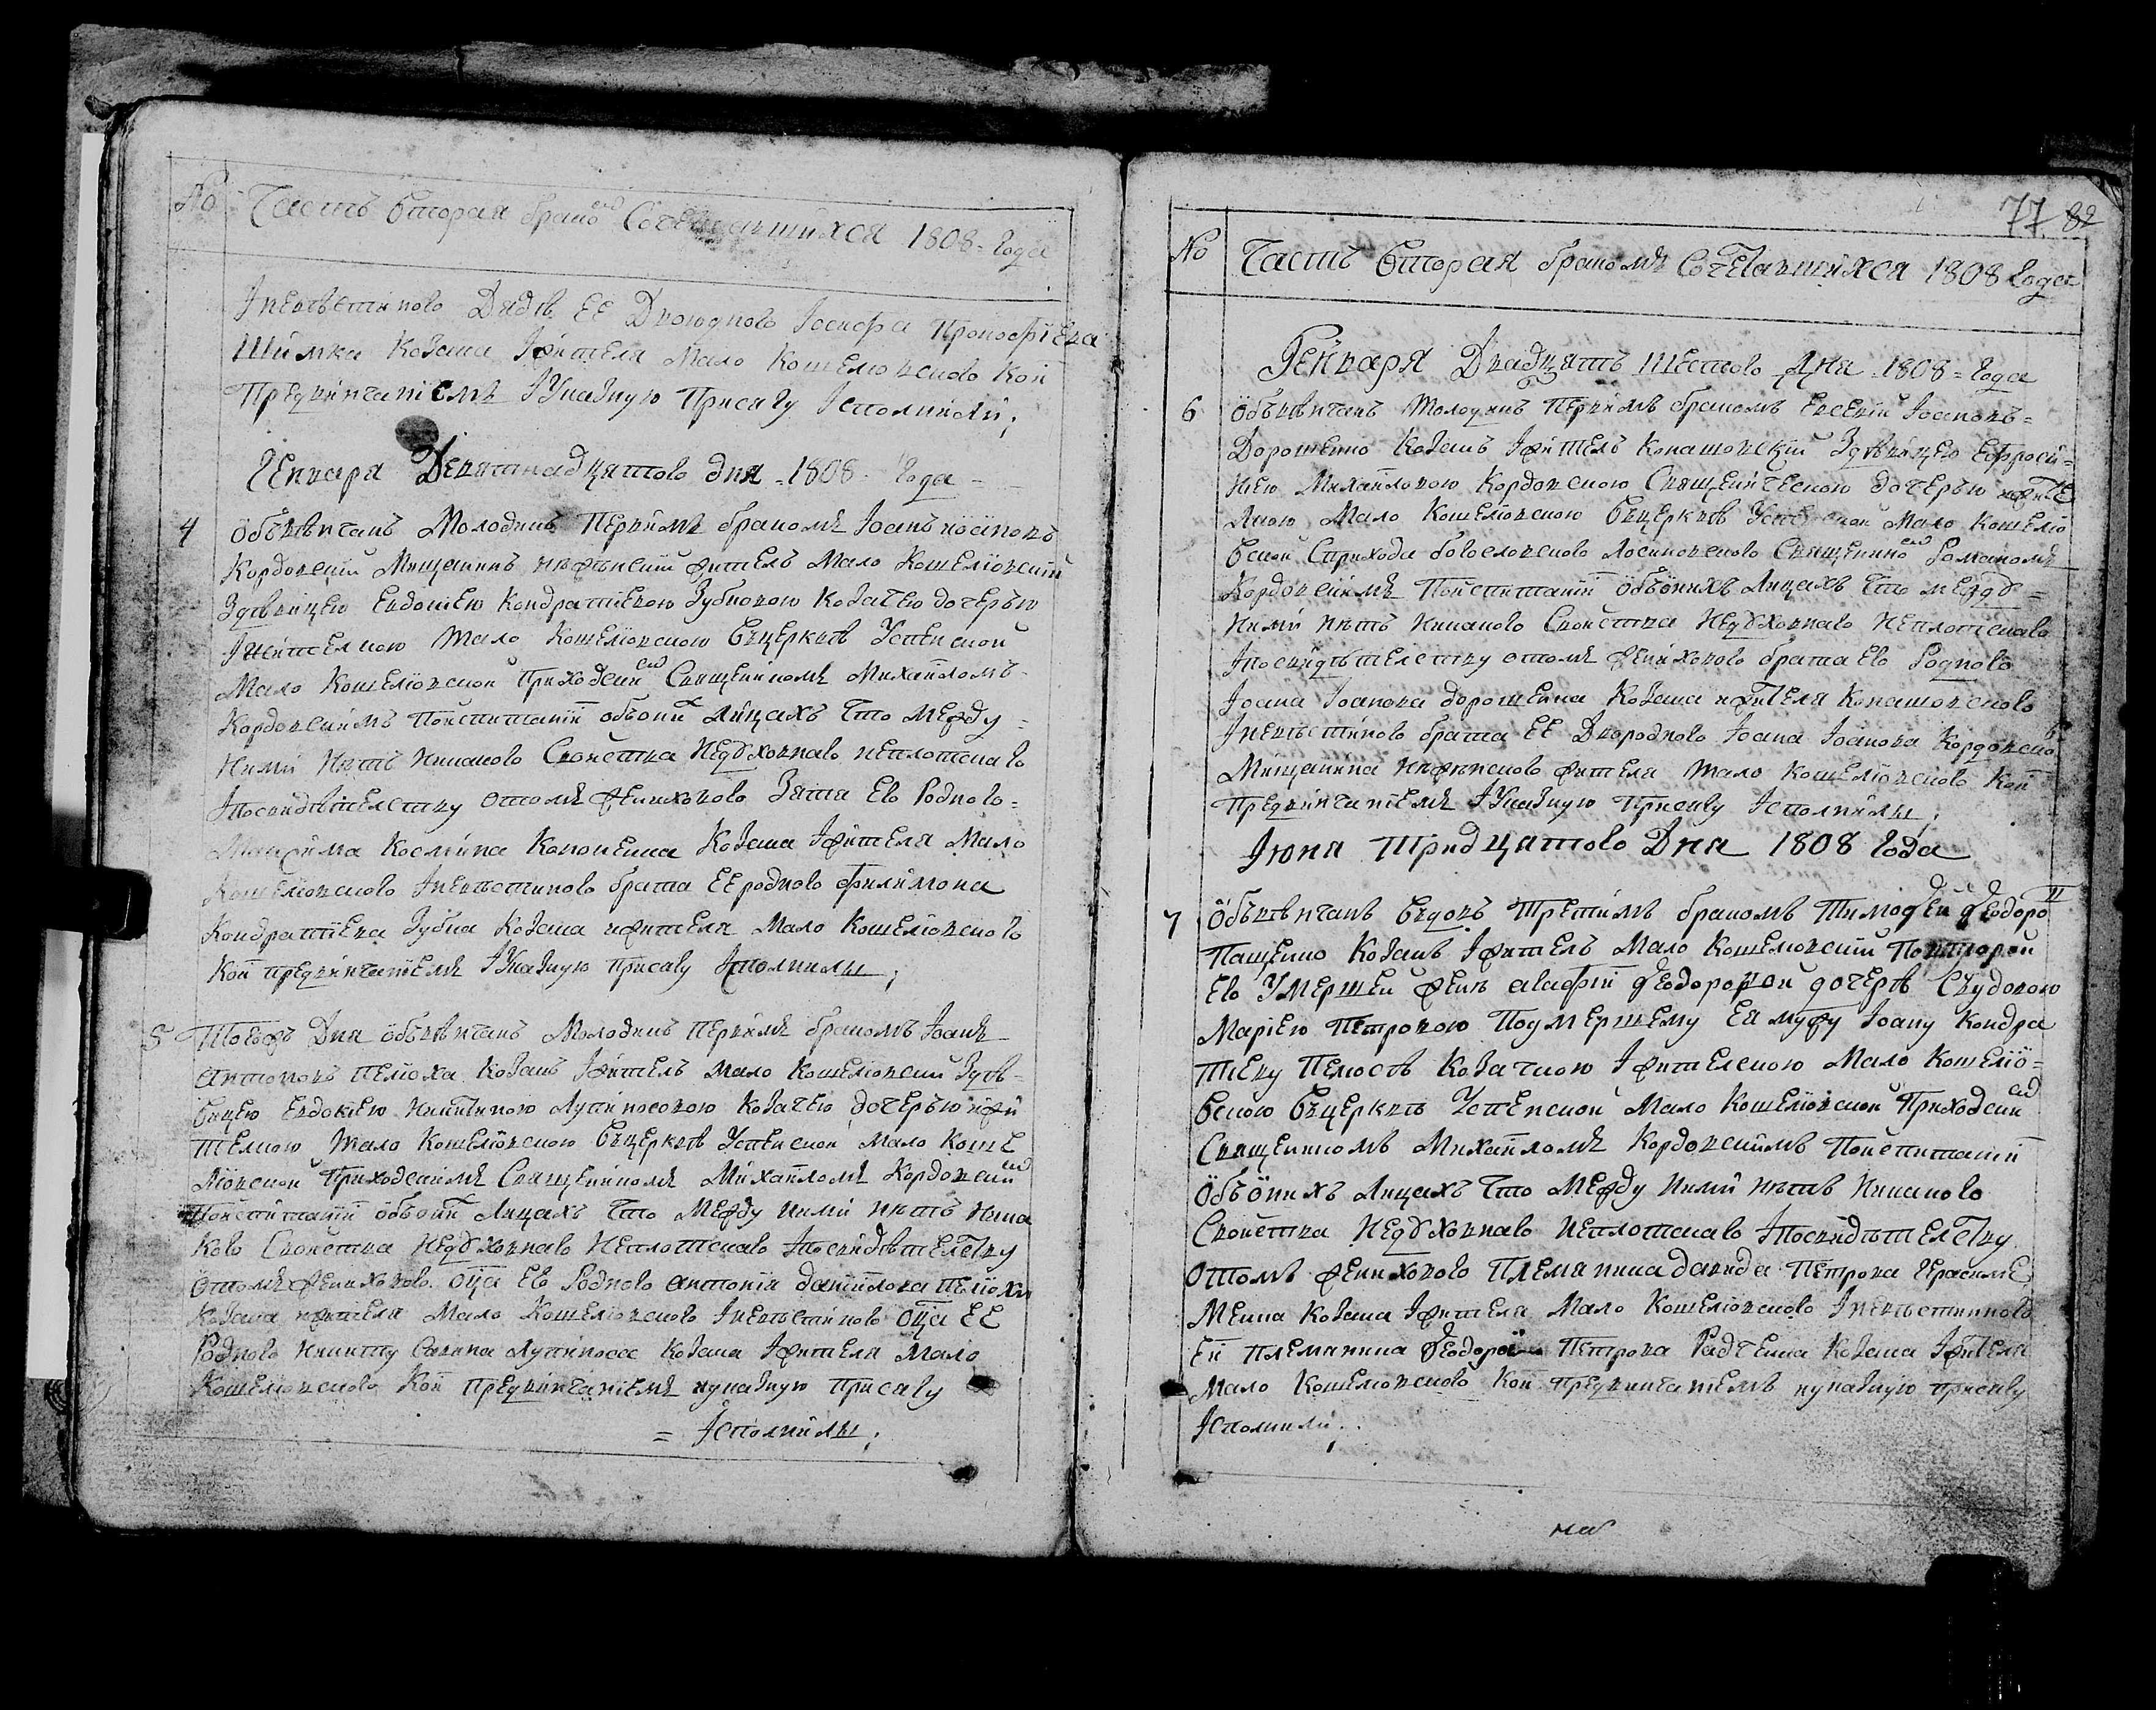 № Часть вторая браком Сочетавшихся 1808 = года
Iневѣстиново Дядѣ ЕЕ Двоюдного Iосифа Прокофiева
Шимка Козака Iжителя Мало Кошелювского Кой
Предвѣнчанiемъ IУказную Присягу Iсполнили;
Генваря Девятнадцятого дня 1808 года
4 Объвѣнчанъ Молодикъ Первимъ бракомъ Iоанъ
Кордовскiй Мищанинъ нѣжинскiй житель Мало Кошелiовскiй
Здѣвицею Евдокiею Кондратiевою Зубковою Козачею дочерью
Iжительною Мало Кошелiовскою Вцерквѣ Успенской
Мало Кошелiовской Приходским Священикомъ Михаиломъ
Кордовскимъ Повспитанiи объоних Лицахъ Что Между =
Ними Нѣтъ Никакого Свойства НЕдȣховнаго неплотскаго
Iпосвидѣтелству отомъ Женихового Зятя Его Родного =
Максима Космина Кононенка Козака Iжителя Мало
Кошелiовского Iневѣстиного брата ЕЕ родного Филимона
Кондратiева Зубка Козака ижителя Мало Кошелiовского
Кой предвѣнчанiемъ IУказную присягу Iсполнили;
5 Тогожъ Дня объвѣнчанъ Молодикъ первимъ бракомъ Iоанъ
Антоновъ Пелюха Козакъ Iжитель мало Кошелювскiй Здѣ =
вицею Евдокiею Никитиною Лупiносовою Козачею дочерью ижи
телною Мало Кошелiовскою Вцерквѣ Успенской Мало Коше
лiовской Приходскимъ Священикомъ Михаиломъ Кордовским
Повспитанiи объоних Лицахъ Что Между ними нѣтъ ника
кого Свойства НЕдȣховнаго Неплотскаго Iпосвидѣтелству
отомъ Женихового отца Его Родного антонiя данiилова пелюхи
Козака ижителя Мало Кошелiовского Iневѣстиного отца ЕЕ
Родного Никиту Савина Лупiноса Козака Iжителя Мало
Кошелювского Кой предвѣнчанiемъ иуказную присягу
= Iсполнили;
77 82
№ Часть вторая бракомъ Сочетавшихся 1808 года
Генваря Двадцять Шестого Дня 1808 = года
6 Объвѣнчанъ Молодикъ Первимъ бракомъ Евсевiй Iоановъ =
Дорошенко Козакъ Iжитель Конашовскiй Здѣвицею Ефроси =
нiею Михаиловою Кордовскою Священическою дочерью ижите
лною Мало Кошелiовскою Вцерквѣ Успенской Мало Кошелiо
вской Сприхода богословского Лосиновского Священиком Романомъ
Кордовскимъ Повспитанiи объонихъ Лицахъ Что между =
Ними нѣтъ Никакого Свойства НЕдȣховнаго Неплотскаго
Iпосвидѣтелству отомъ Женихового брата Его Родного
Iоана Iоанова дорошенка Козака ижителя Конашовского
Iневѣстиного брата ЕЕ Двородного Iоана Iоанова Кордовского
Мищанина Нѣжинского жителя Мало Кошелiовского Кой
Предвѣнчанiемъ IУказную Присягу Iсполнили;
Iюня Тридцатого Дня 1808 года
7 Объвѣнчанъ Вдовъ Третимъ бракомъ Тимофей Феодоров
Пащенко Козакъ Iжитель Мало Кошелювскiй Повторой
Его Умершей Женѣ агафiи Феодоровой дочерѣ Свдовою
Марiею Петровою Поумершему Ея мужу Iоану Кондра
тiеву Козачкою Iжителскою Мало Кошелiо =
вскою Вцерквѣ Успенской Мало Кошелiовской Приходским
Священикомъ Михаиломъ Кордовскимъ Повспитанiи
Объонихъ Лицахъ Что Между Ними нѣтъ Никакого
Свойства НЕдȣховнаго Неплотскаго Iпосвидѣтелству
Отомъ Женихового Племяника давида Петрова Герасиме
Менка Козака Iжителя Мало Кошелiовского Iневѣстинного
Ей племяника Феодора Петрова Радченка Козака Iжителя
Мало Кошелювского Кой предвѣнчанiемъ иуказную присягу
Iсполнили;